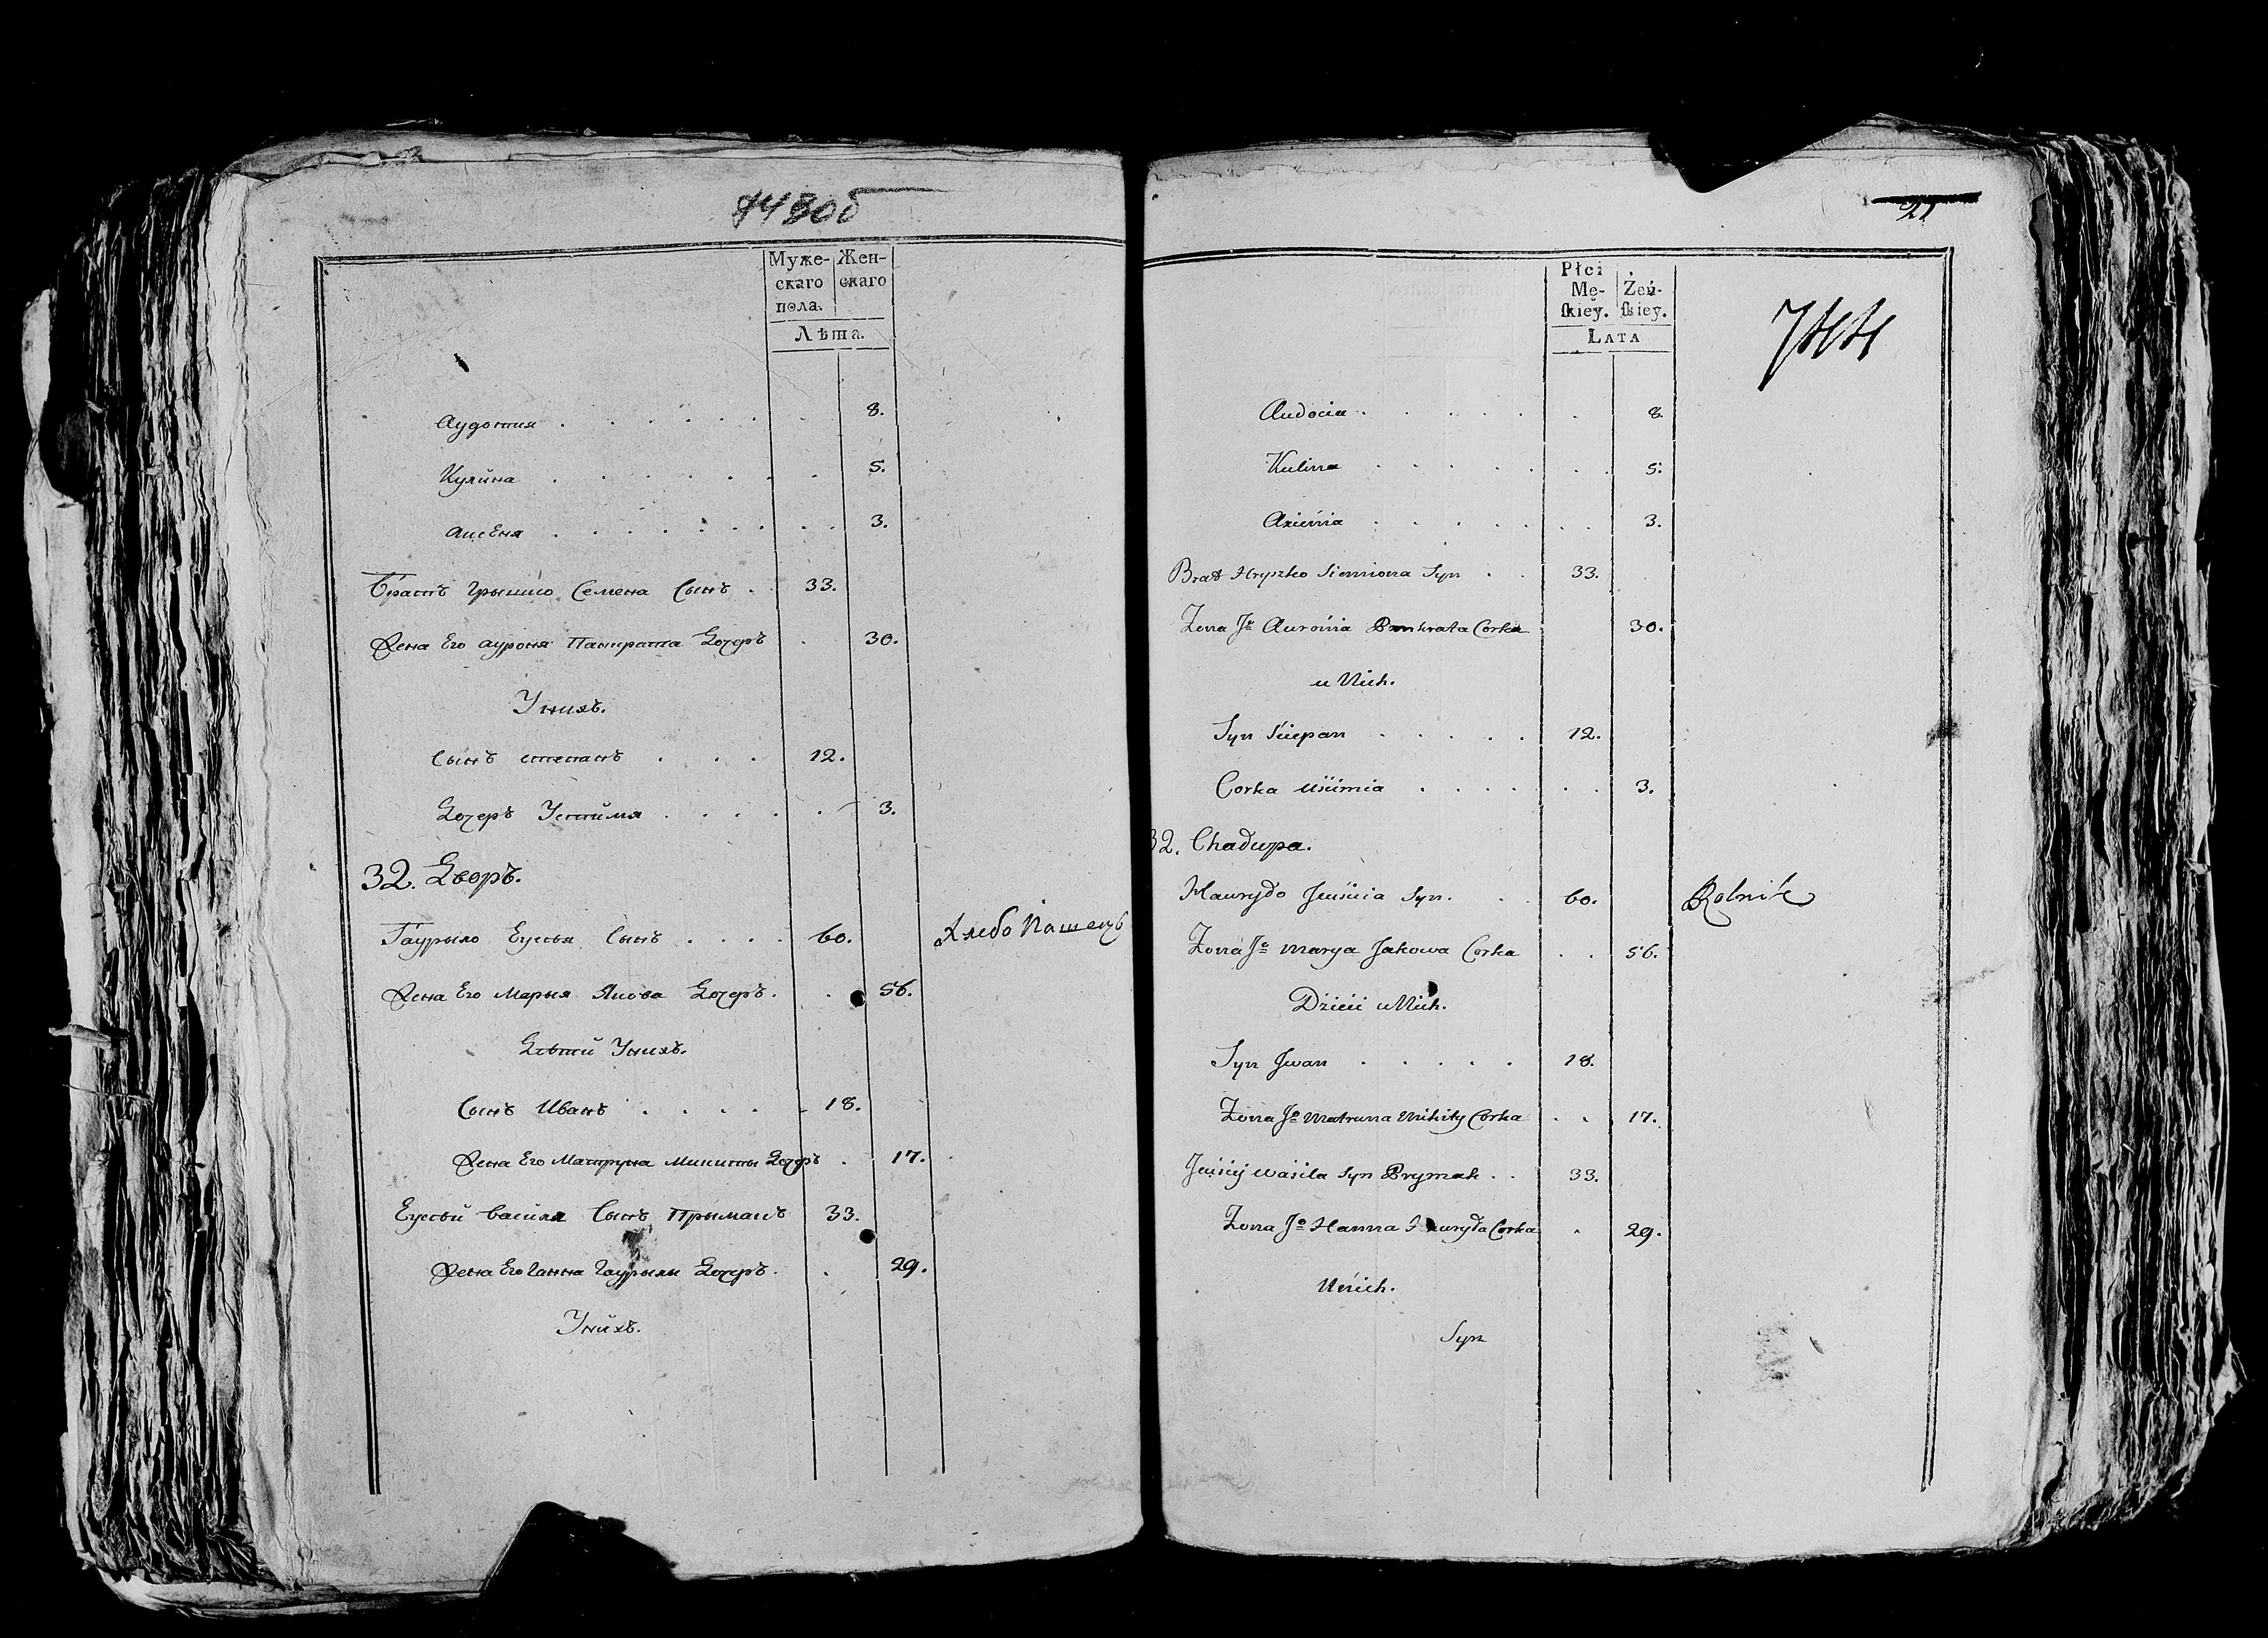 Муже-
скаго
пола.
Жен-
скаго
Лѣта.
Аудотия 8.
Кулина 5.
Аксеня 3.
Братъ Грышко Семена Сынъ 33.
Жена Его Ауроня Панкрата Дочеръ 30.
У нихъ.
Сынъ Степанъ 12.
Дочеръ Устимя 3.
32. Дворъ.
Гаурыло Еусея Сынъ 60. Хлебо Пашецъ
Жена Его Марыя Якова Дочеръ. 56.
Дѣти У нихъ.
Сынъ Иванъ 18.
Жена Его Матруна Микиты Дочеръ 17.
Еусѣй Василя Сынъ Прымакъ 33.
Жена Его Ганна Гаурылы Дочеръ. 29.
У нихъ.
21
Płci
Mę-
skiey.
Żeń-
skiey.
LATA
744
Audocia 8.
Kulina 5.
Axienia 3.
Brat Hryszko Siemiona Syn 33.
Zona Jo Auronia Pankrata Corka 30.
u Nich.
Syn Sciepan 12.
Corka Uscimia 3.
32. Chadupa.
Hawrydo Jeusieia Syn. 60. Rolnik
Zona Jo Marya Jakowa Corka 56.
Dzieci u Nich.
Syn Jwan 18.
Zona Jo Matruna Mikity Corka 17.
Jeusiej Wasila Syn Prymak 33.
Zona Jo Hanna Hawryda Corka 29.
U nich.
Syn